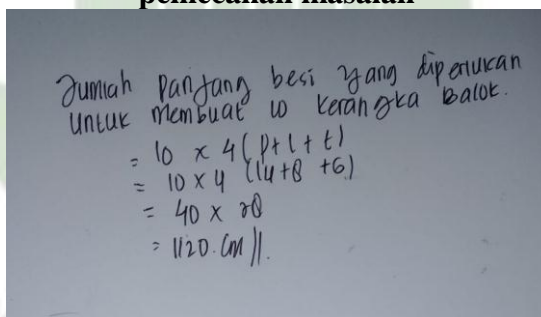 pemecahan masalah
Jumlah Panjang besi yang diperlukan
Untuk Membuat 10 kerangka Balok.
= 10 x 4 (P + l + t)
= 10 x 4 (14 + 8 + 6)
= 40 x 28
= 1120. Cm //.